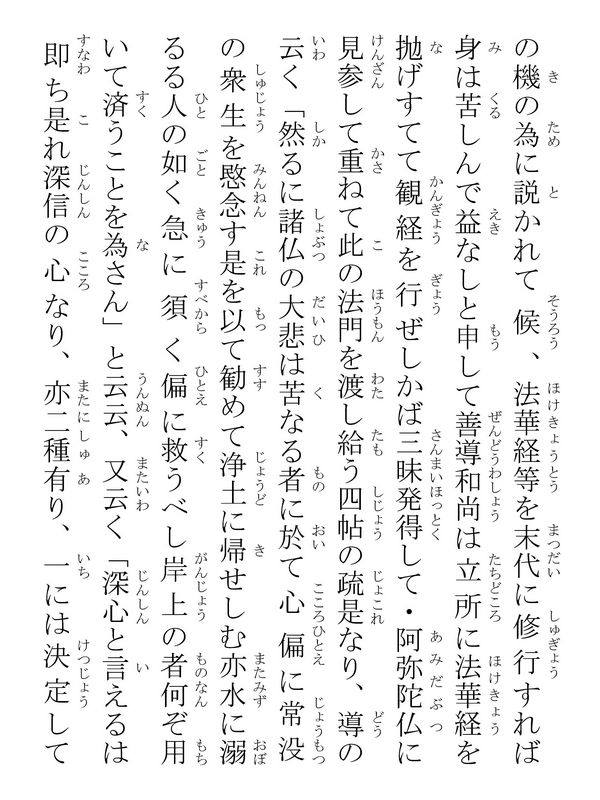 の機の為に説かれて候、法華経等を末代に修行すれば
身は苦しんで益なしと申して善導和尚は立所に法華経を
抛げすてて観経を行ぜしかば三昧発得して・阿弥陀仏に
見参して重ねて此の法門を渡し給う四帖の疏是なり、導の
云く「然るに諸仏の大悲は苦なる者に於て心偏に常没
の衆生を愍念す是を以て勧めて浄土に帰せしむ亦水に溺
るる人の如く急に須く偏に救うべし岸上の者何ぞ用
いて済うことを為さん」と云云、又云く「深心と言えるは
即ち是れ深信の心なり、亦二種有り、一には決定して